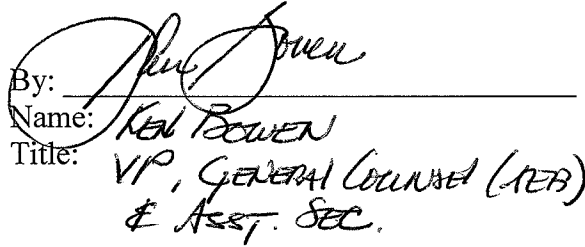 By: Ken Bowen
Name: KEN BOWEN
Title: VP, GENERAL COUNSEL (TEB)
& ASST. SEC.